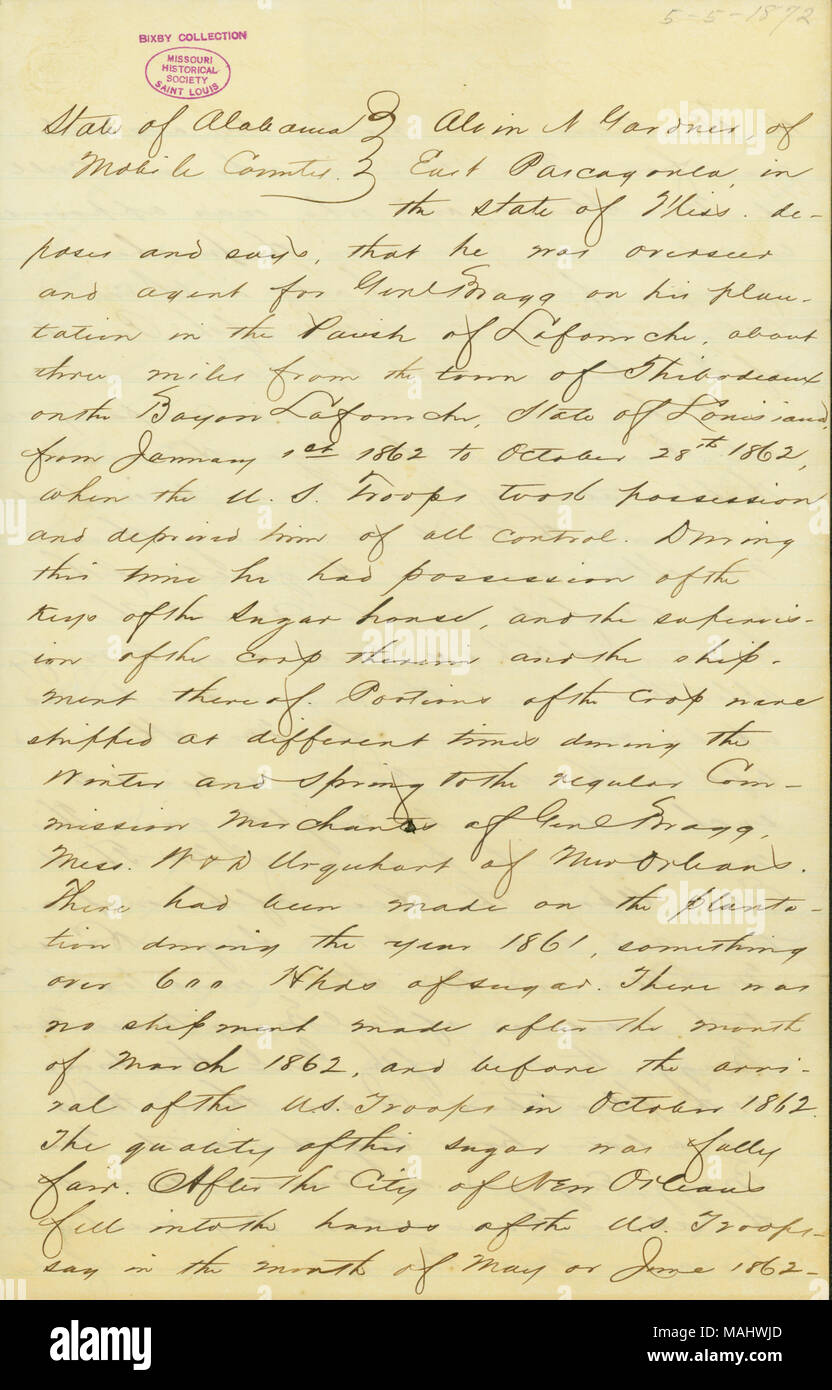 5-5-1872
BIXBY COLLECTION
MISSOURI
HISTORICAL
SOCIETY
SAINT LOUIS
State of Alabama } Alvin N Gardner, of
Mobile County. } East Pascagoula, in
the state of Miss. de-
poses and says, that he was overseer
and agent for Genl Bragg on his plan-
tation in the Parish of Lafourche, about
three miles from the town of Thibodeaux
on the Bayou Lafourche, State of Louisiana,
from January 1st 1862 to October 28th 1862,
when the U. S. Troops took possession
and deprived him of all control. During
this time he had possession of the
keys of the sugar house, and the supervis-
ion of the crop therein and the ship-
ment thereof. Portions of the crop were
shipped at different times during the
Winter and Spring to the regular Com-
mission Merchants of Genl Bragg,
Mess. W & D Urquhart of New Orleans.
There had been made on the planta-
tion during the year 1861, something
over 600 Hhds of sugar. There was
no shipment made after the month
of March 1862, and before the arri-
val of the U.S. Troops in October 1862.
The quality of this sugar was fully
fair. After the City of New Orleans
fell into the hands of the U.S. Troops-
say in the month of May or June 1862-
alamy
Image ID: MAHWJD
www.alamy.com